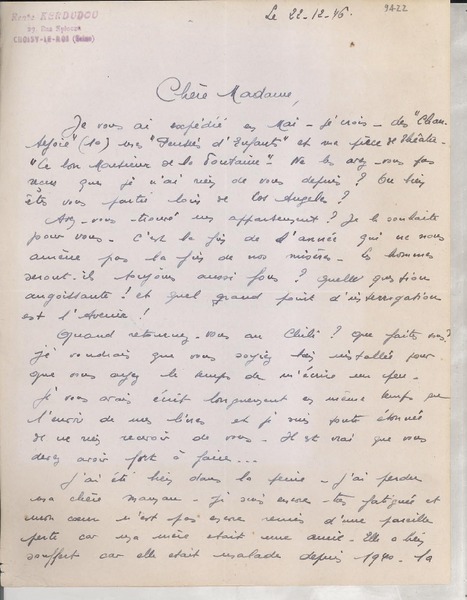 Renée KERDUDOU
27, Rue
CHOISY-LE-ROI (Seine)
Le 22-12-46.
9422
Chère Madame,
Je vous ai expédié en Mai - je crois - des "Chan
tejoie" (10) mes "Pensées d'Enfants" et ma pièce de théâtre -
"Ce bon Monsieur de la Fontaine". Ne les avez-vous pas
reçus que je n'ai rien de vous depuis ? Ou bien
êtes vous partie loin de Los Angeles ?
Avez-vous trouvé un appartement ? Je le souhaite
pour vous. C'est la fin de l'année qui ne nous
amène pas la fin de nos misères. Les hommes
seront-ils toujours aussi fous ? Quelle question
angoissante ! et quel grand point d'interrogation
est l'avenir !
Quand retournez-vous au Chili ? Que faites vous ?
Je voudrais que vous soyiez bien installée pour
que vous ayez le temps de m'écrire un peu.
Je vous avais écrit longuement en même temps que
l'envoi de mes livres et je suis toute étonnée
de ne rien recevoir de vous. Il est vrai que vous
devez avoir fort à faire...
J'ai été bien dans la peine - J'ai perdu
ma chère maman - Je suis encore très fatiguée et
mon cœur n'est pas encore remis d'une pareille
perte car ma mère était une amie. Elle a bien
souffert car elle était malade depuis 1940. La